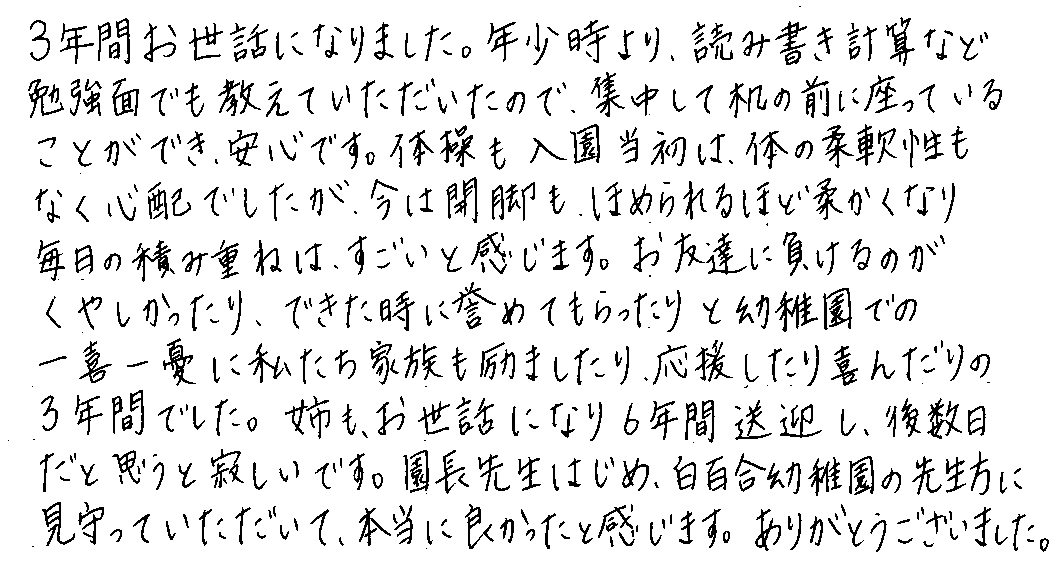 3年間お世話になりました。年少時より、読み書き計算など
勉強面でも教えていただいたので、集中して机の前に座っている
ことができ、安心です。体操も入園当初は、体の柔軟性も
なく心配でしたが、今は開脚も、ほめられるほど柔かくなり
毎日の積み重ねは、すごいと感じます。お友達に負けるのが
くやしかったり、できた時に誉めてもらったりと幼稚園での
一喜一憂に私たち家族も励ましたり、応援したり喜んだりの
3年間でした。姉も、お世話になり6年間送迎し、後数日
だと思うと寂しいです。園長先生はじめ、白百合幼稚園の先生方に
見守っていただいて、本当に良かったと感じます。ありがとうございました。